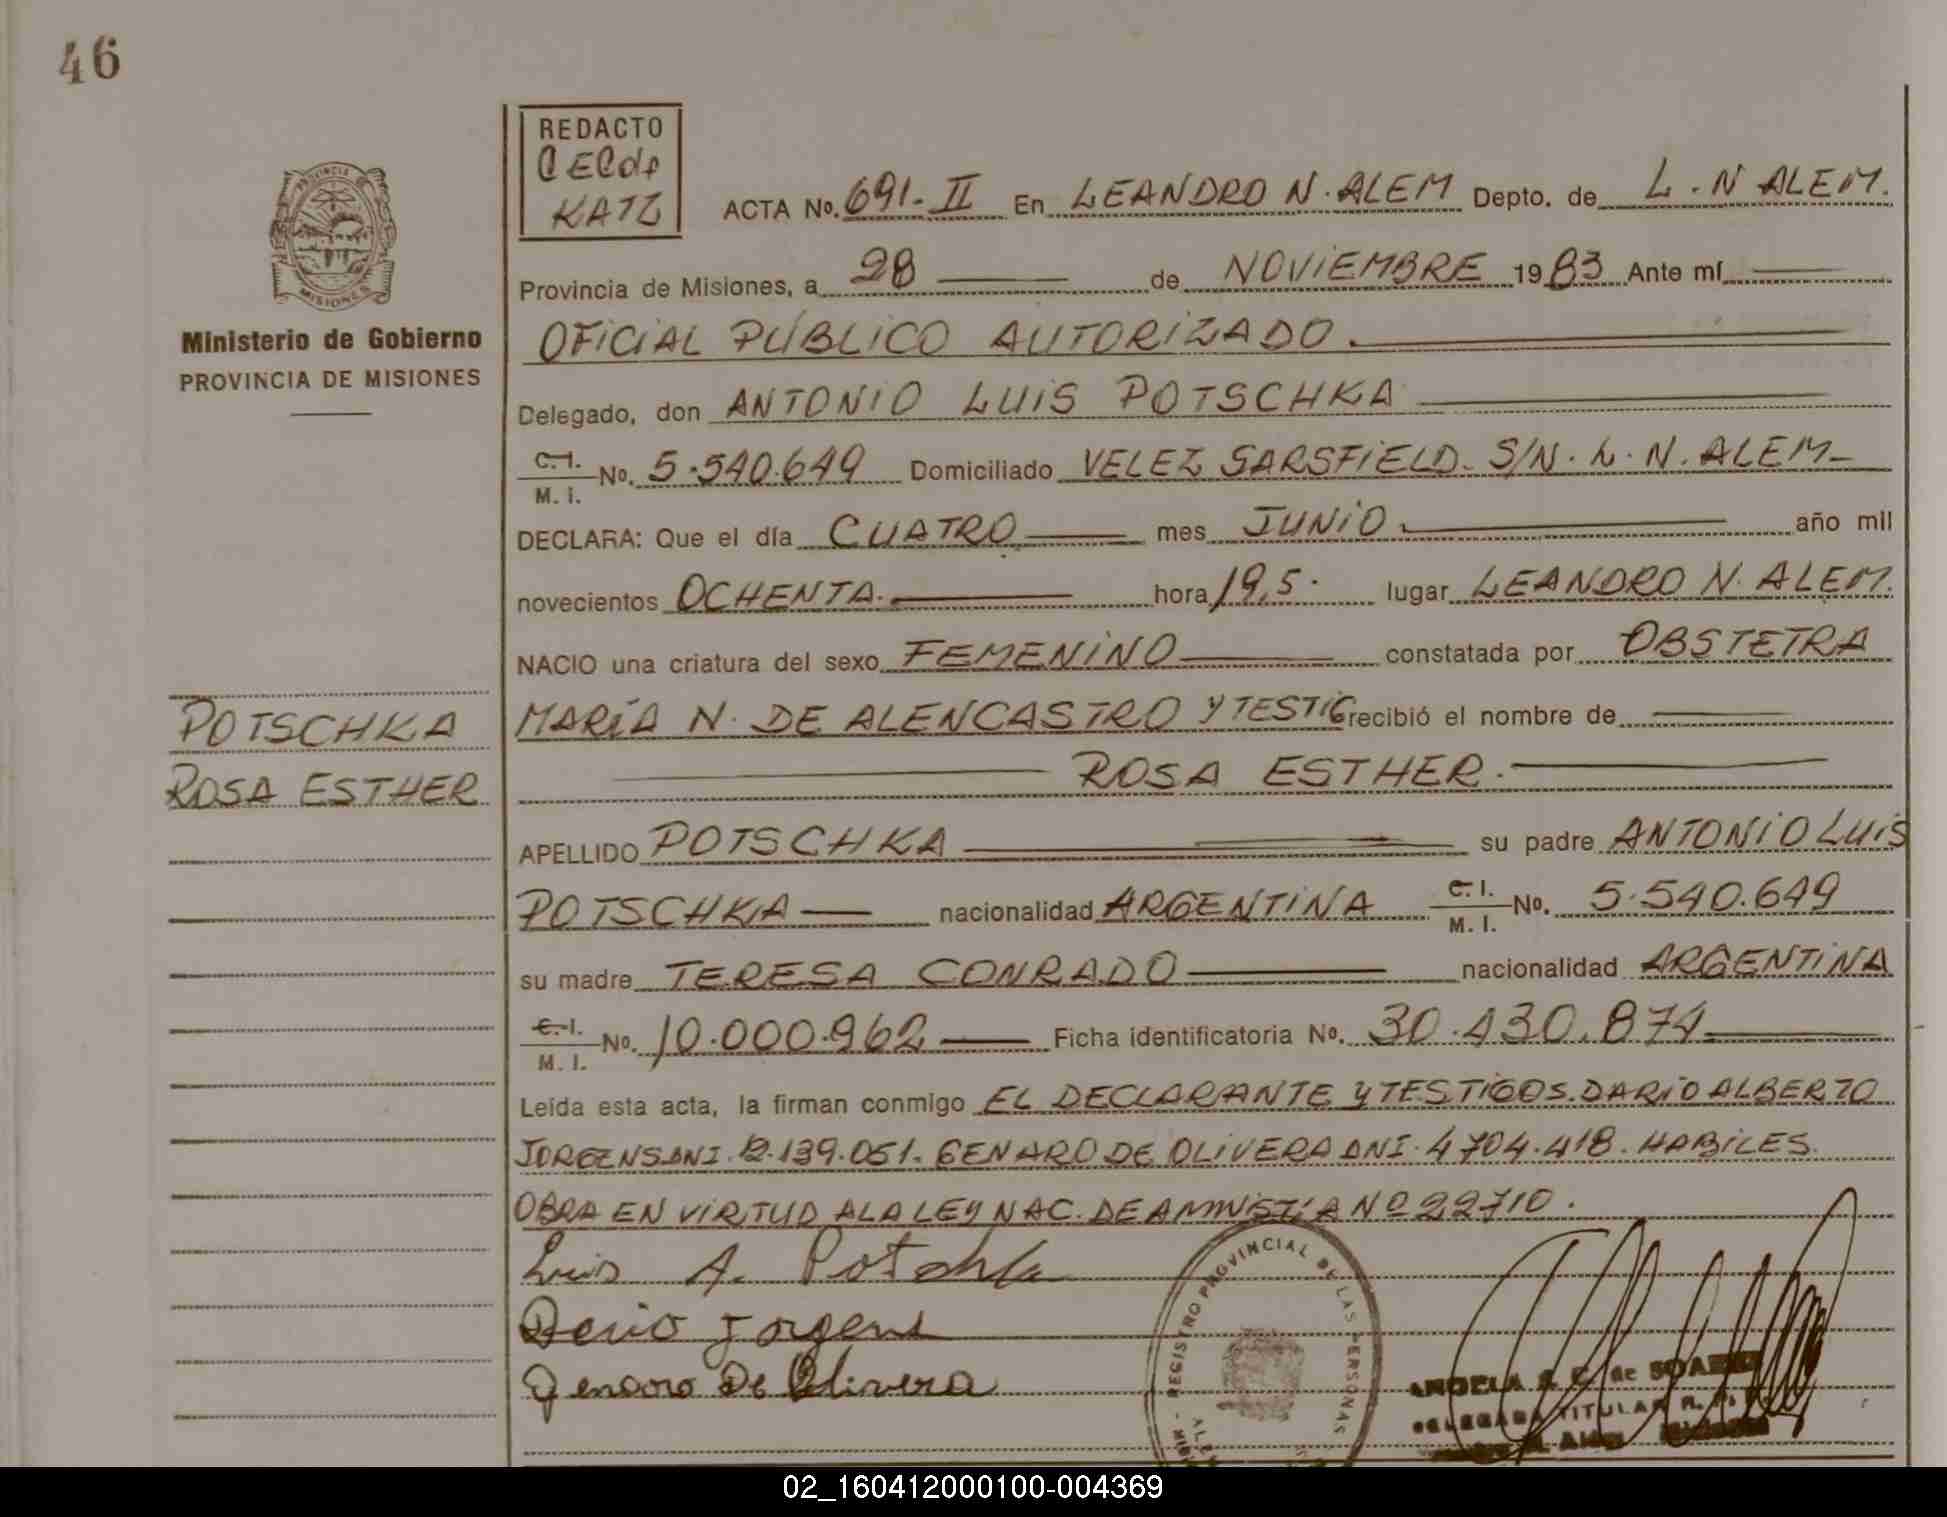 46
REDACTO
KATZ
PROVINCIA
MISIONES
Ministerio de Gobierno
PROVINCIA DE MISIONES
ACTA No. 691-II En LEANDRO N. ALEM Depto. de L.N ALEM.
Provincia de Misiones, a 28 de NOVIEMBRE 1983 Ante mí
OFICIAL PÚBLICO AUTORIZADO.
Delegado, don ANTONIO LUIS POTSCHKA
C.I. / M. I. No. 5.540.649 Domiciliado VELEZ SARSFIELD. S/N. L. N. ALEM-
DECLARA: Que el día CUATRO mes JUNIO año mil
novecientos OCHENTA. hora 19,5. lugar LEANDRO N. ALEM.
NACIO una criatura del sexo FEMENINO constatada por OBSTETRA
MARÍA N. DE ALENCASTRO Y TESTIG recibió el nombre de
ROSA ESTHER.
POTSCHKA
ROSA ESTHER
APELLIDO POTSCHKA su padre ANTONIO LUIS
POTSCHKA nacionalidad ARGENTINA C.I. / M. I. No. 5.540.649
su madre TERESA CONRADO nacionalidad ARGENTINA
C.I. / M. I. No. 10.000.962 Ficha identificatoria No. 30.430.874
Leída esta acta, la firman conmigo EL DECLARANTE Y TESTIGOS. DARIO ALBERTO
JORGENS DNI. 12.139.051. GENARO DE OLIVERA DNI. 4704.418. HABILES.
OBRA EN VIRTUD A LA LEY NAC. DE AMNISTIA Nº 22710.
Luis A. Potschka
Dario Jorgens
Genaro De Olivera
REGISTRO PROVINCIAL DE LAS PERSONAS
ANGELA de SOAREZ
DELEGADA TITULAR R. P.
02_160412000100-004369